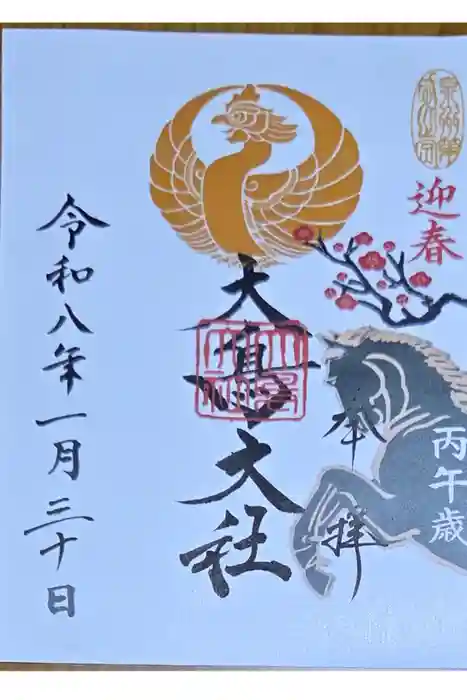 迎春
丙午歳
奉拝
大鳥大社
令和八年一月三十日